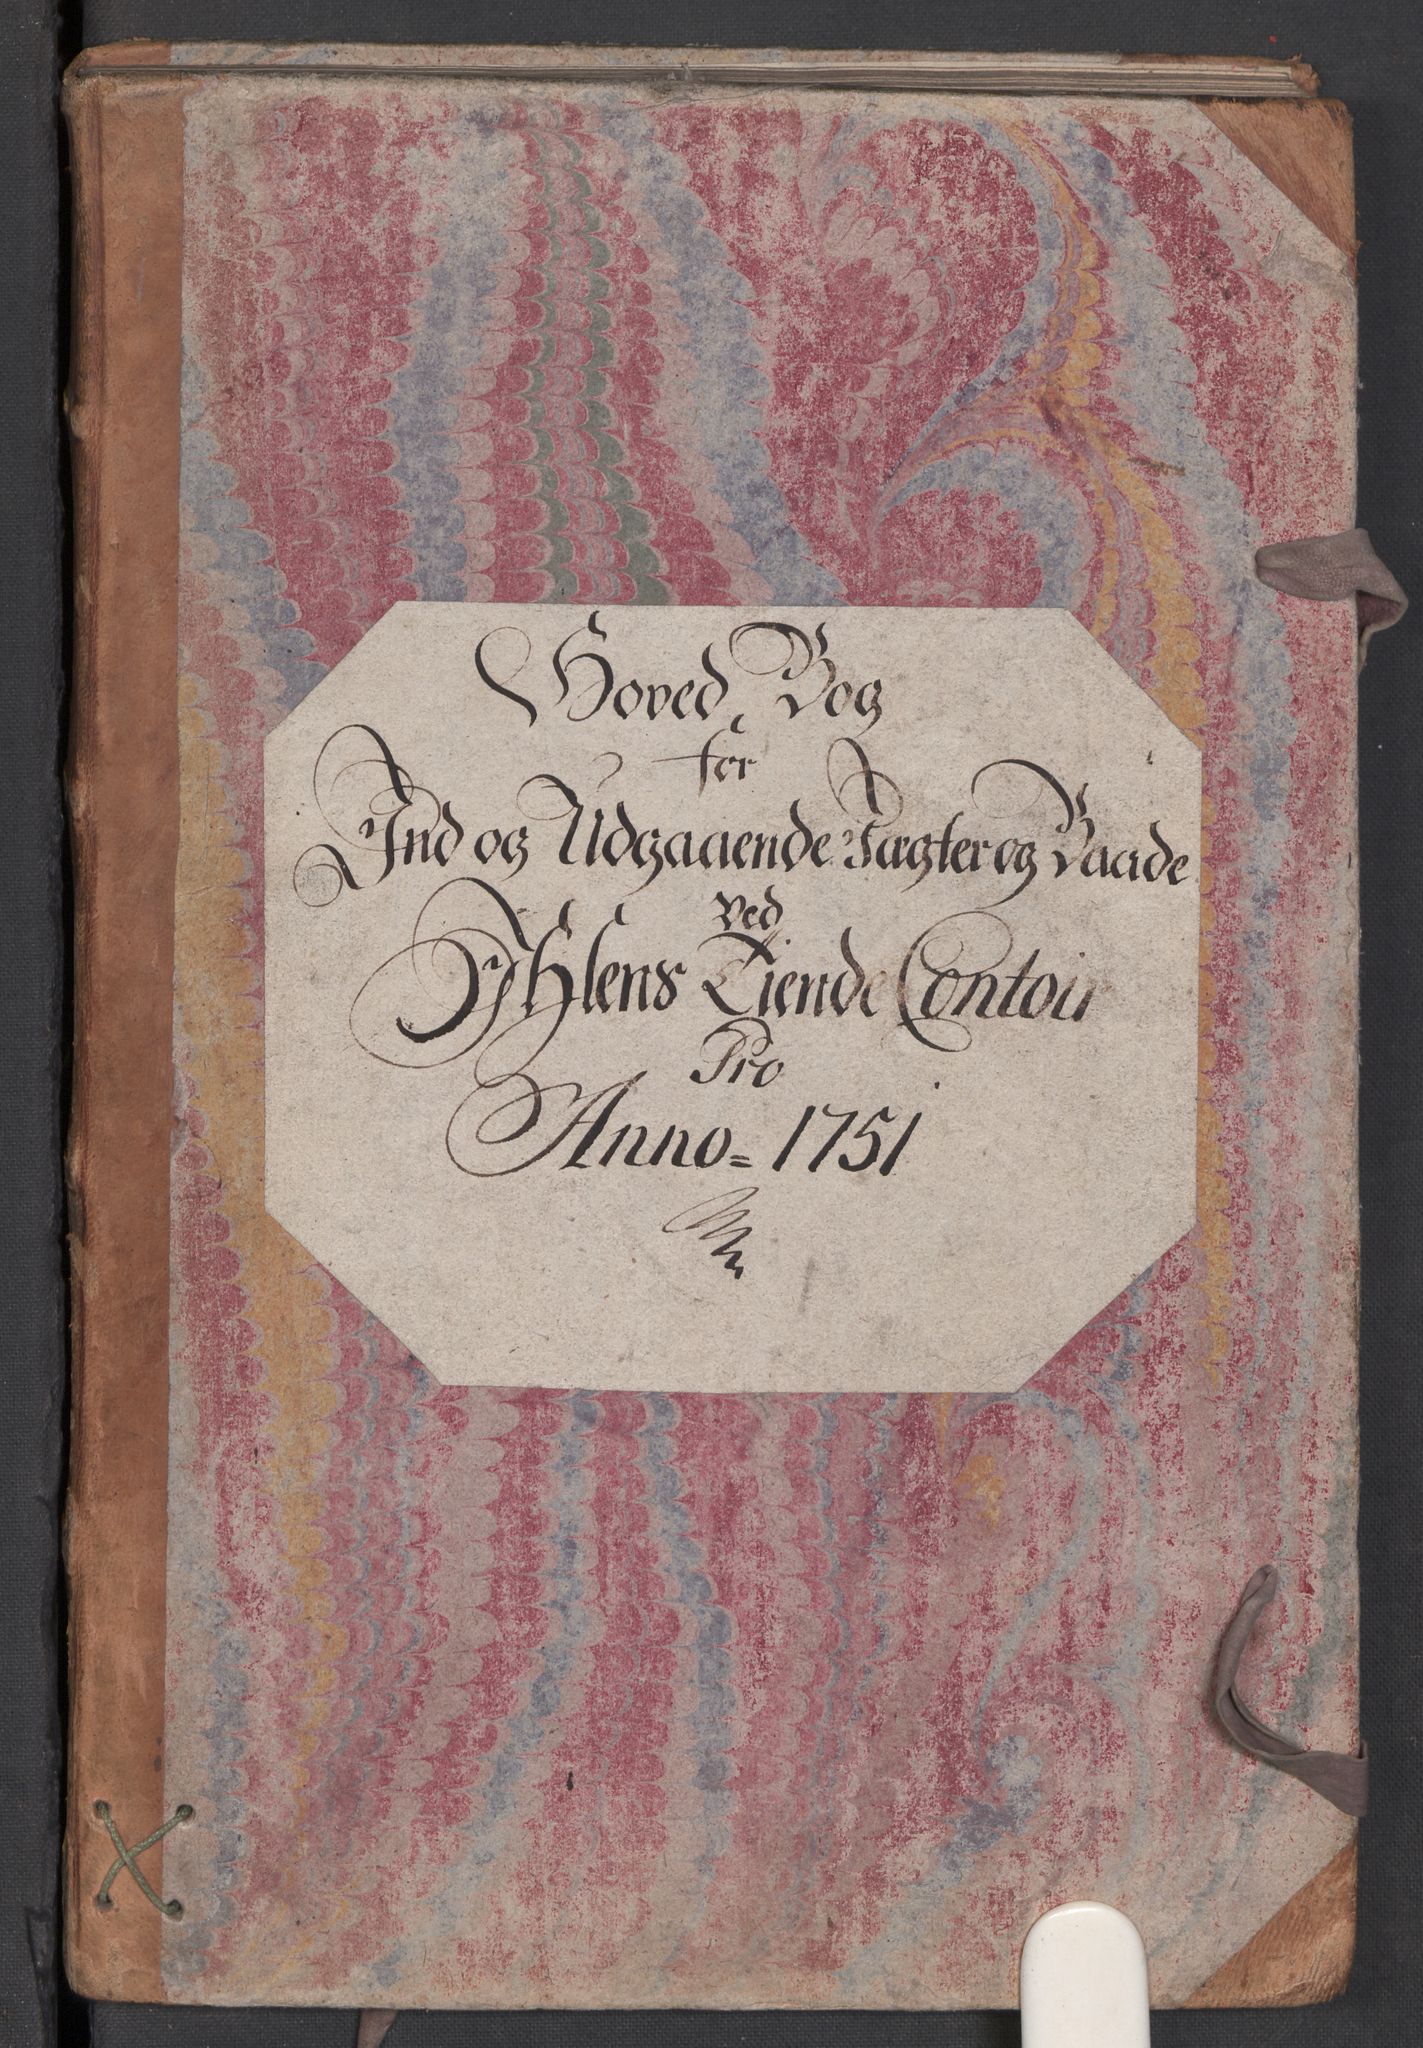 Hoved Bog
for
Ind og Udgaaende Jagter og Baade
ved
Ihlens Tiende Contoir
Pro
Anno = 1751